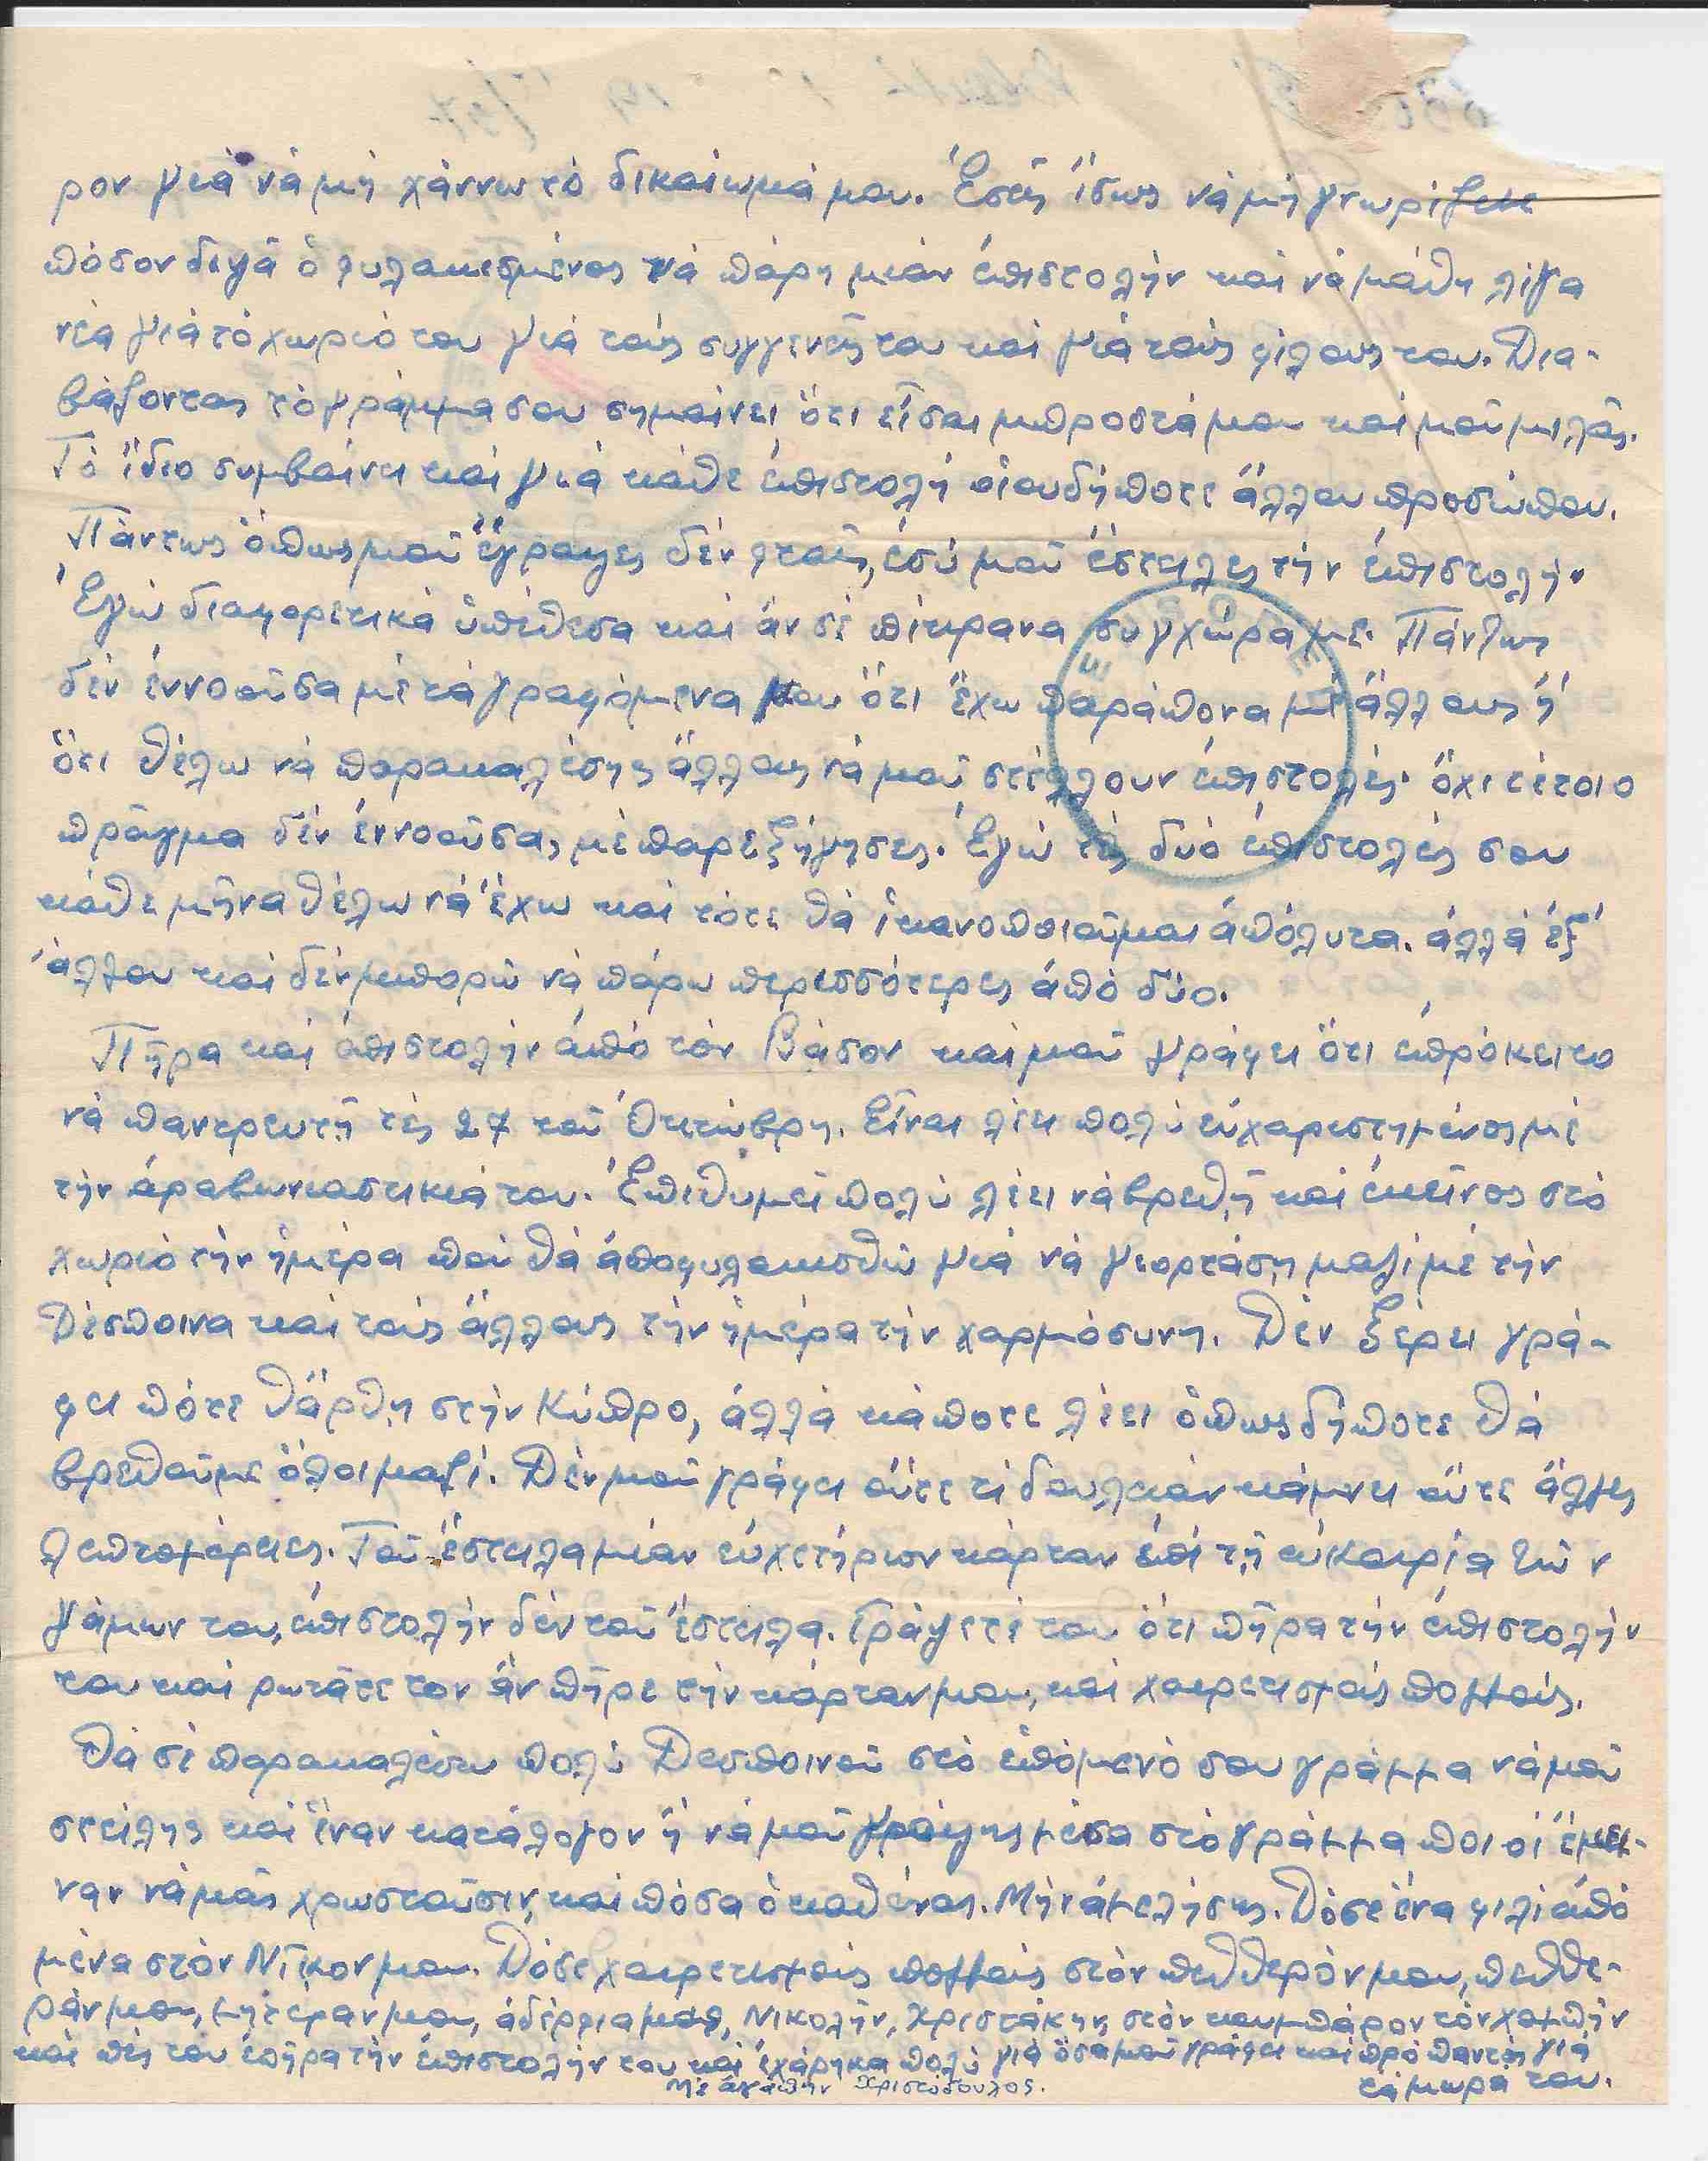 ρον γιὰ νὰ μὴ χάννω τὸ δικαίωμά μου. Ἐσεῖς ἴσως νὰ μὴ γνωρίζετε
πόσον διψᾶ ὁ φυλακισμένος νὰ πάρη μιὰν ἐπιστολὴν καὶ νὰ μάθη λίγα
νέα γιὰ τὸ χωριό του γιὰ τοὺς συγγενεῖς του καὶ γιὰ τοὺς φίλους του. Δια-
βάζοντας τὸ γράμμα σου σημαίνει ὅτι εἶσαι μπροστά μου καὶ μοῦ μιλᾶς.
Τὸ ἴδιο συμβαίνει καὶ γιὰ κάθε ἐπιστολὴ οἱουδήποτε ἄλλου προσώπου.
Πάντως ὅπως μοῦ ἔγραψες δὲν φταῖς, ἐσὺ μοῦ ἔστειλες τὴν ἐπιστολὴν
Ἐγὼ διαφορετικὰ ὑπέθεσα καὶ ἂν σὲ πίκρανα συγχώρα με. Πάντως
δὲν ἐννοοῦσα μὲ τὰ γραφόμενά μου ὅτι ἔχω παράπονα μὲ ἄλλους ἢ
ὅτι θέλω νὰ παρακαλέσης ἄλλους νὰ μοῦ στέλλουν ἐπιστολές· ὄχι τέτοιο
πρᾶγμα δὲν ἐννοοῦσα, μὲ παρεξήγησες. Ἐγὼ τὲς δυὸ ἐπιστολές σου
κάθε μῆνα θέλω νὰ ἔχω καὶ τότε θὰ ἱκανοποιοῦμαι ἀπόλυτα. ἀλλὰ ἐξ
ἄλλου καὶ δὲν μπορῶ νὰ πάρω περισσότερες ἀπὸ δύο.
Πῆρα καὶ ἐπιστολὴν ἀπὸ τὸν Βάσον καὶ μοῦ γράφει ὅτι ἐπρόκειτο
νὰ παντρευτῆ τὲς 27 τοῦ Ὀκτώβρη. Εἶναι λέει πολὺ εὐχαριστημένος μὲ
τὴν ἀραβωνιαστικιά του. Ἐπιθυμεῖ πολὺ λέει νὰ βρεθῆ καὶ ἐκεῖνος στὸ
χωριὸ τὴν ἡμέρα ποὺ θὰ ἀποφυλακισθῶ γιὰ νὰ γιορτάση μαζὶ μὲ τὴν
Δέσποινα καὶ τοὺς ἄλλους τὴν ἡμέρα τὴν χαρμόσυνη. Δὲν ξέρει γρά-
φει πότε θἄρθη στὴν Κύπρο, ἀλλὰ κάποτε λέει ὁπωσδήποτε θὰ
βρεθοῦμε ὅλοι μαζί. Δὲν μοῦ γράφει οὔτε τί δουλειὰν κάμνει οὔτε ἄλλες
λεπτομέρειες. Τοῦ ἔστειλα μίαν εὐχετήριον κάρταν ἐπὶ τῆ εὐκαιρία τῶν
γάμων του, ἐπιστολὴν δὲν τοῦ ἔστειλα. Γράψετέ του ὅτι πῆρα τὴν ἐπιστολὴν
του καὶ ρωτᾶτε τον ἂν πῆρε τὴν κάρταν μου, καὶ χαιρετισμοὺς πολλούς.
Θὰ σὲ παρακαλέσω πολὺ Δεσποινοῦ στὸ ἑπόμενό σου γράμμα νὰ μοῦ
στείλης καὶ ἕναν κατάλογον ἢ νὰ μοῦ γράψης μέσα στὸ γράμμα ποιοὶ ἔμει-
ναν νὰ μᾶς χρωστοῦσιν, καὶ πόσα ὁ καθένας. Μὴν ἀμελήσης. Δόσε ἕνα φιλὶ ἀπὸ
μένα στὸν Νῖκον μου. Δόσε χαιρετισμοὺς πολλοὺς στὸν πεθθερόν μου, πεθθε-
ράν μου, μητέραν μου, ἀδέρφια μας, Νικολὴν, Χριστάκην, στὸν κουμπάρον τὸν Χαμπὴν
καὶ πές του ἐπῆρα τὴν ἐπιστολήν του καὶ ἐχάρηκα πολὺ γιὰ ὅσα μοῦ γράφει καὶ πρὸ παντὸς γιὰ
τὰ μωρά του.
Μὲ ἀγάπην Χριστόδουλος.